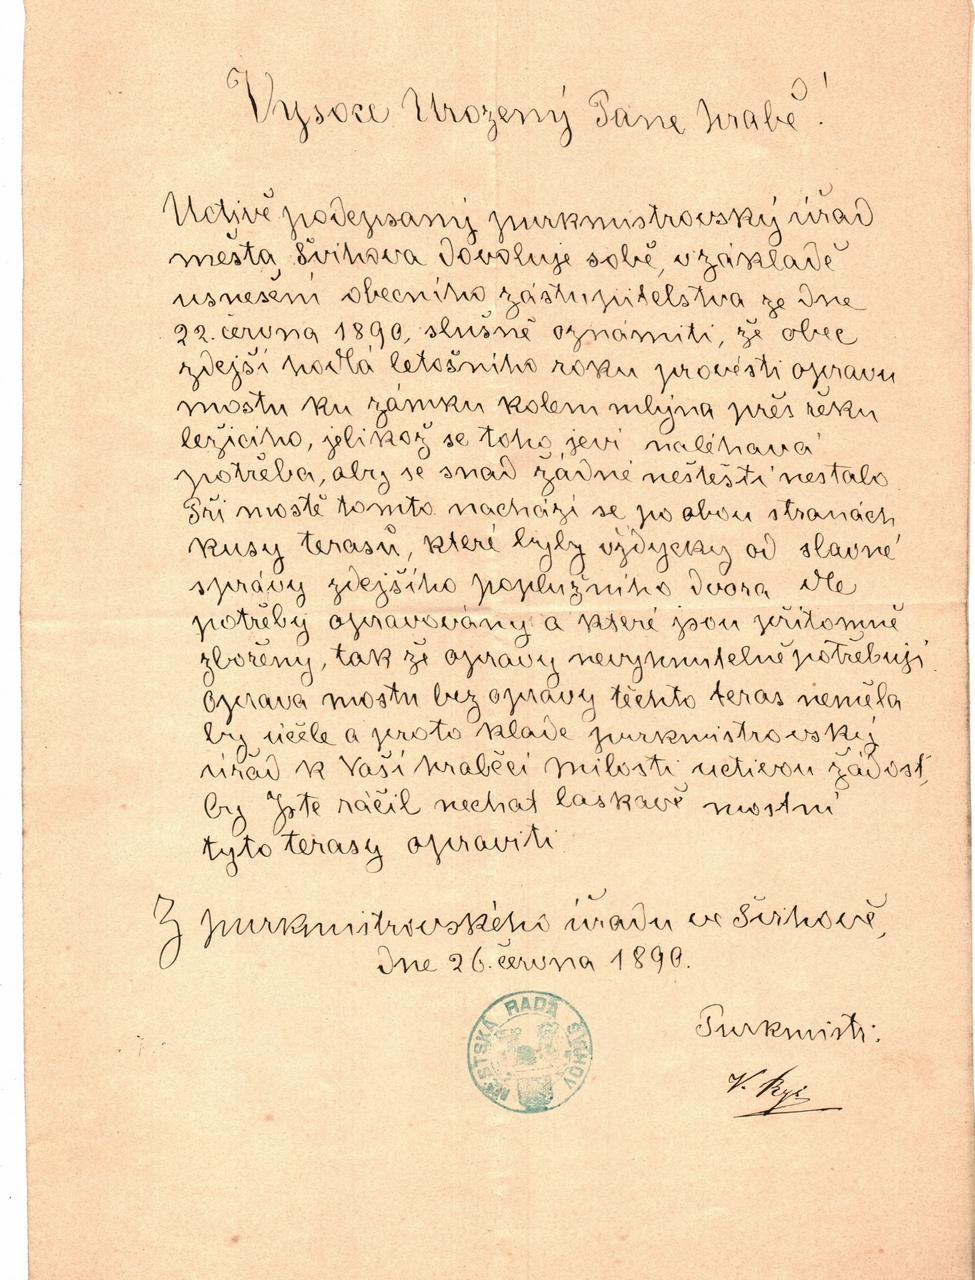 Vysoce Urozený Pane hrabě!
Uctivě podepsaný purkmistrovský úřad
města Švihova dovoluje sobě, v základě
usnešení obecního zástupitelstva ze dne
22. června 1890, slušně oznámiti, že obec
zdejší hodlá letošního roku provésti opravu
mostu ku zámku kolem mlýna přes řeku
ležícího, jelikož se toho jeví naléhavá
potřeba, aby se snad žádné neštěstí nestalo.
Při mostě tomto nachází se po obou stranách
kusy terasů, které byly vždycky od slavné
správy zdejšího poplužního dvora dle
potřeby opravovány a které jsou přítomně
zbořeny, tak že opravy nevyhnutelně potřebují.
Oprava mostu bez opravy těchto teras neměla
by účele a proto klade purkmistrovský
úřad k Vaší hraběcí milosti uctivou žádost,
by Jste ráčil nechat laskavě mostní
tyto terasy opraviti.
Z purkmistrovského úřadu ve Švihově,
dne 26. června 1890.
MĚSTSKÁ RADA ŠVIHOV
Purkmistr:
V.